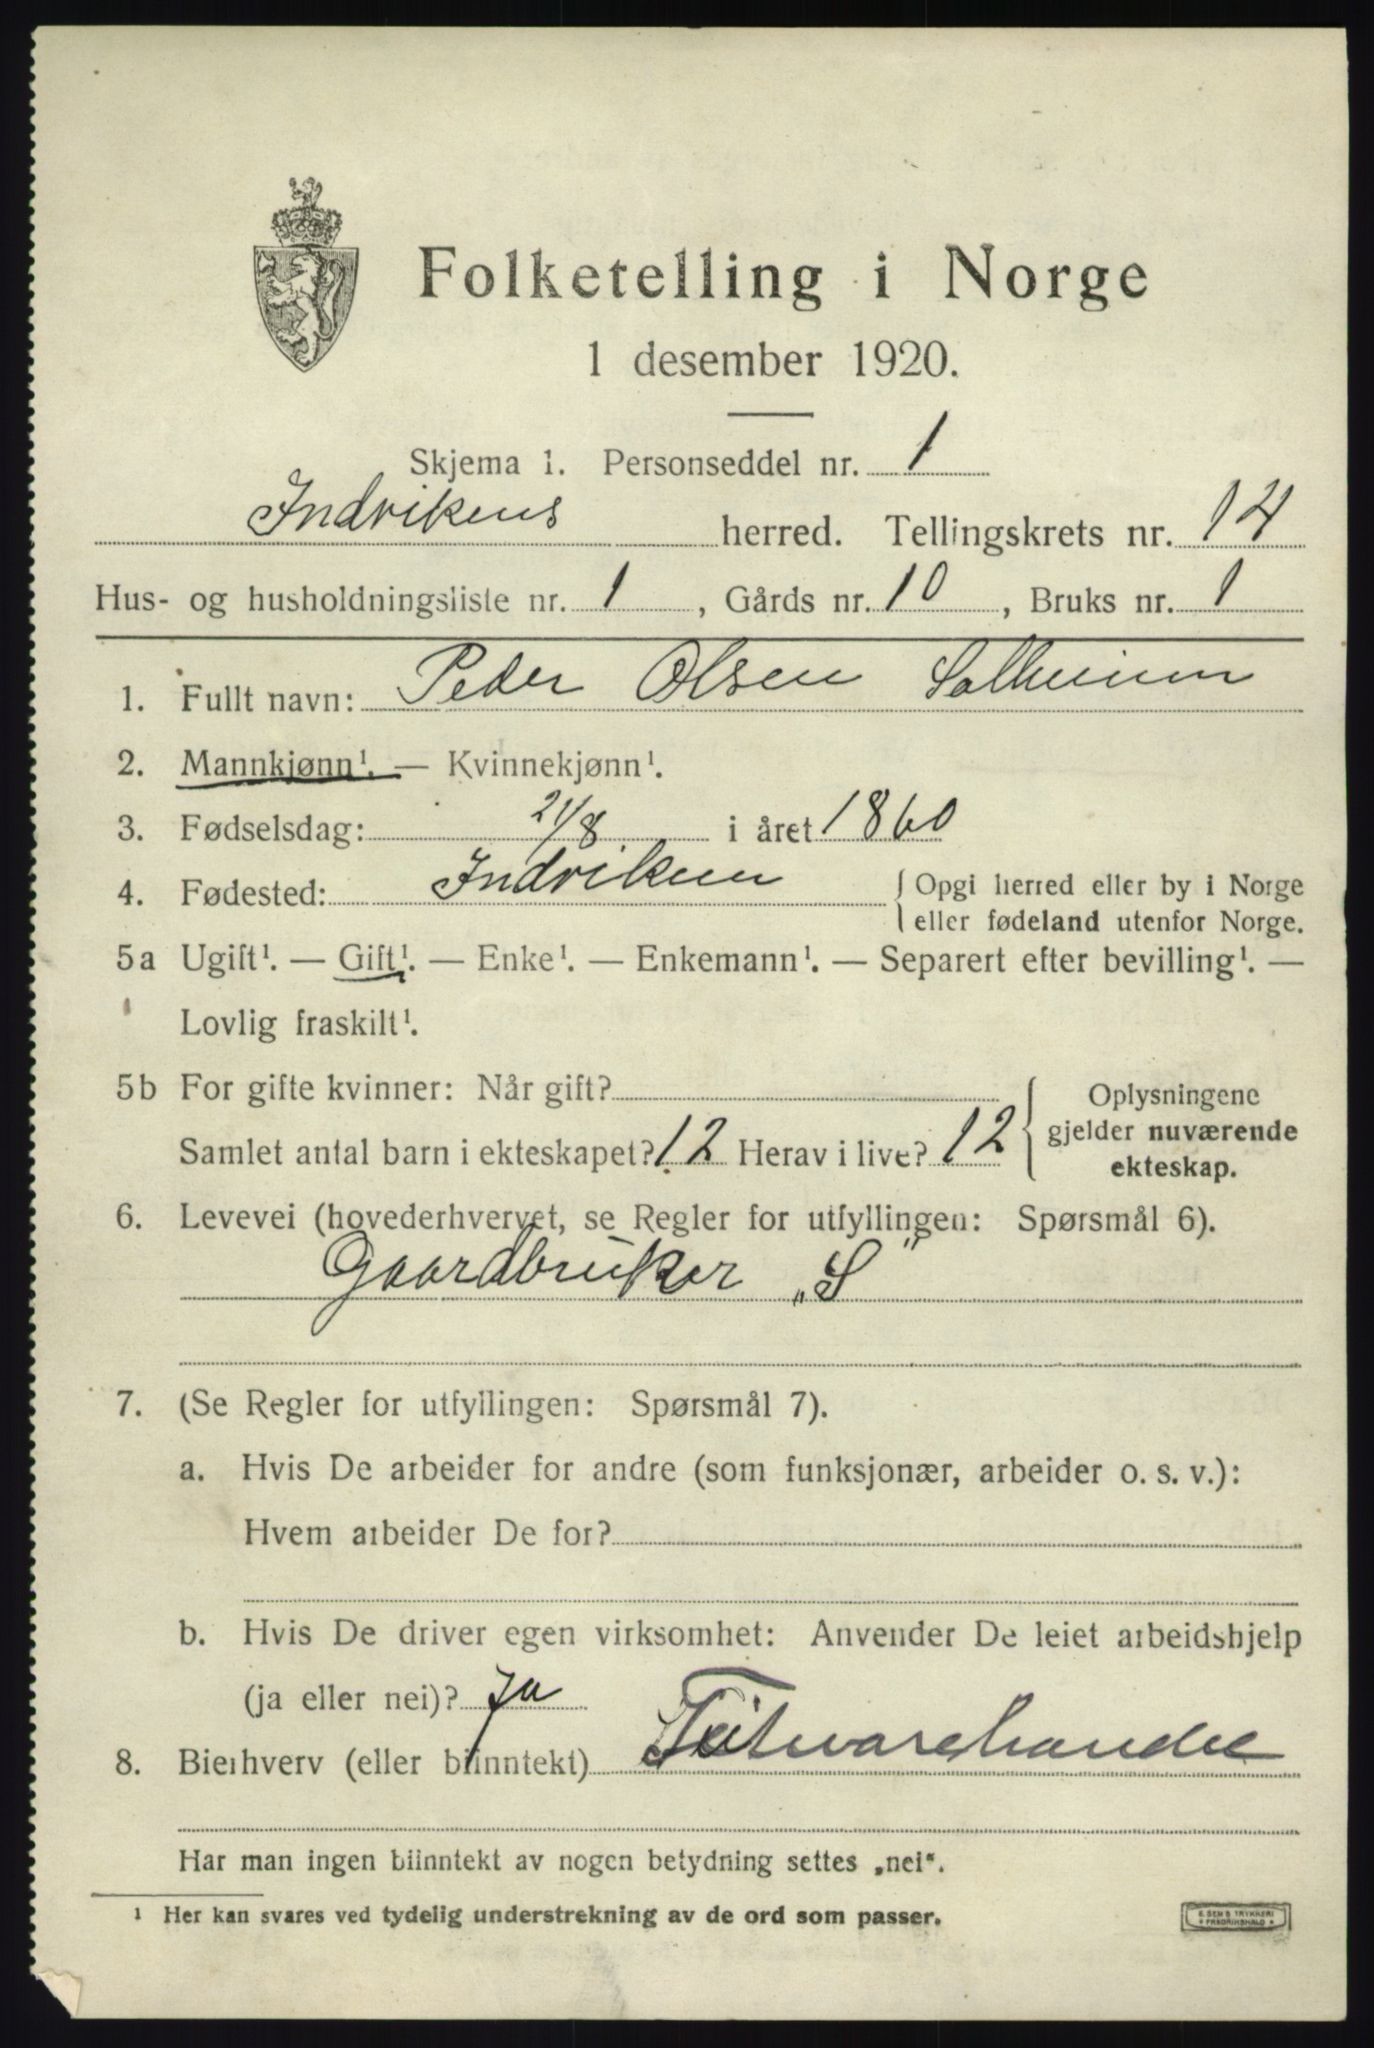 Folketelling i Norge
1 desember 1920.
Skjema 1. Personseddel nr. 1
Indvikens herred. Tellingskrets nr. 14
Hus- og husholdningsliste nr. 1, Gårds nr. 10, Bruks nr. 1
1. Fullt navn: Peder Olsen Solheim
2. Mannkjønn¹. — Kvinnekjønn¹.
3. Fødselsdag: 21/8 i året 1860
4. Fødested: Indviken { Opgi herred eller by i Norge
eller fødeland utenfor Norge.
5a Ugift¹. — Gift¹. — Enke¹. — Enkemann¹. — Separert efter bevilling¹. —
Lovlig fraskilt¹.
5b For gifte kvinner: Når gift? { Oplysningene
gjelder nuværende
Samlet antal barn i ekteskapet? 12 Herav i live? 12
ekteskap.
6. Levevei (hovederhvervet, se Regler for utfyllingen: Spørsmål 6).
Gaardbruker „S"
7. (Se Regler for utfyllingen: Spørsmål 7).
a. Hvis De arbeider for andre (som funksjonær, arbeider o. s. v.):
Hvem arbeider De for?
b. Hvis De driver egen virksomhet: Anvender De leiet arbeidshjelp
(ja eller nei)? Ja
8. Bierhverv (eller biinntekt)
Har man ingen biinntekt av nogen betydning settes „nei“.
¹ Her kan svares ved tydelig understrekning av de ord som passer.
E. SEM'S TRYKKERI
* FREDRIKSHALD *